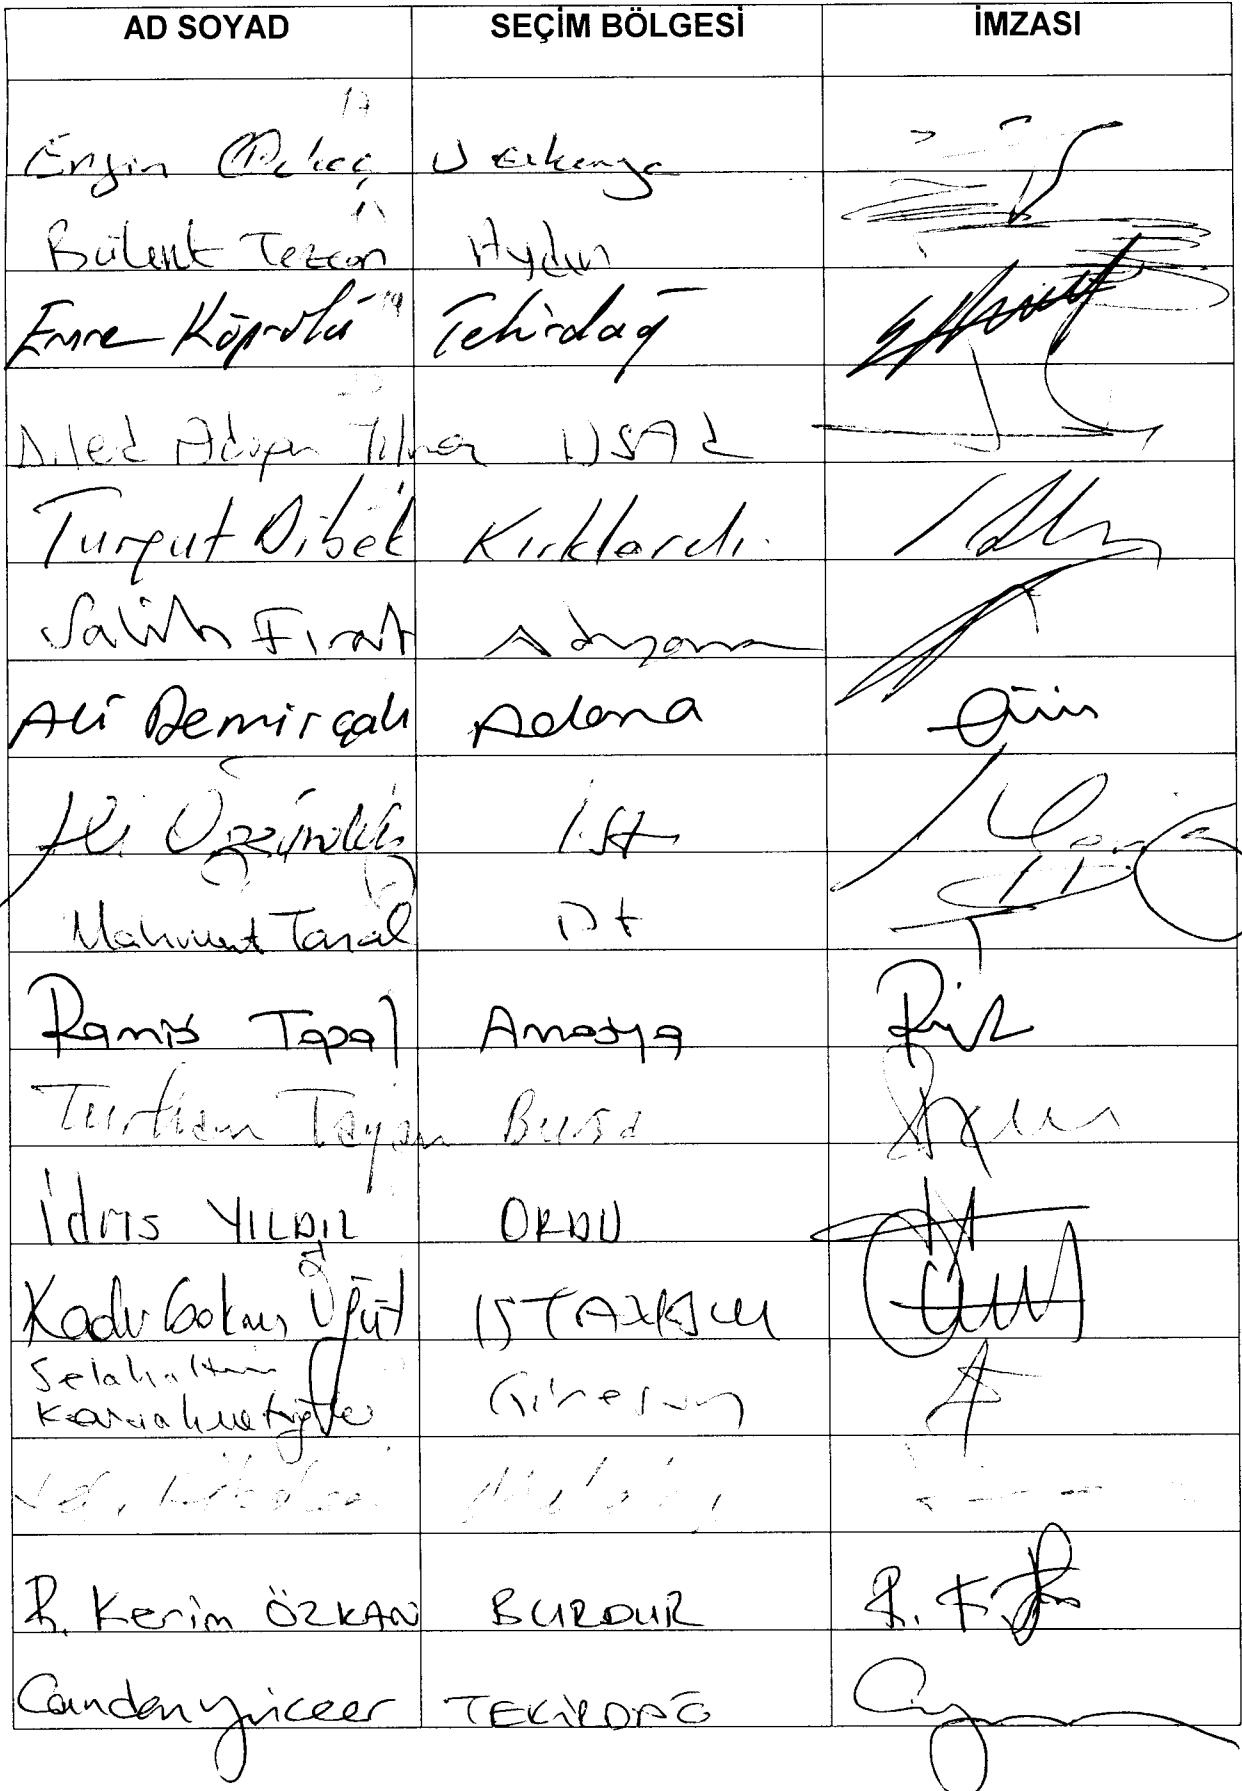 AD SOYAD SEÇİM BÖLGESİ İMZASI
Engin
Bülent Tezcan Aydın
Emre Köprülü Tekirdağ
Dilek Akagün Yılmaz UŞAK
Turgut Dibek Kırklareli
Salih Fırat Adıyaman
Ali Demirçalı Adana
Ali Özgündüz İst
Mahmut Tanal İst
Ramis Topal Amasya
Turhan Tayan Bursa
İdris YILDIZ ORDU
Kadir Gökmen Öğüt İSTANBUL
Selahattin Giresun
Karaahmetoğlu
R. Kerim ÖZKAN BURDUR
Candan Yüceer TEKİRDAĞ